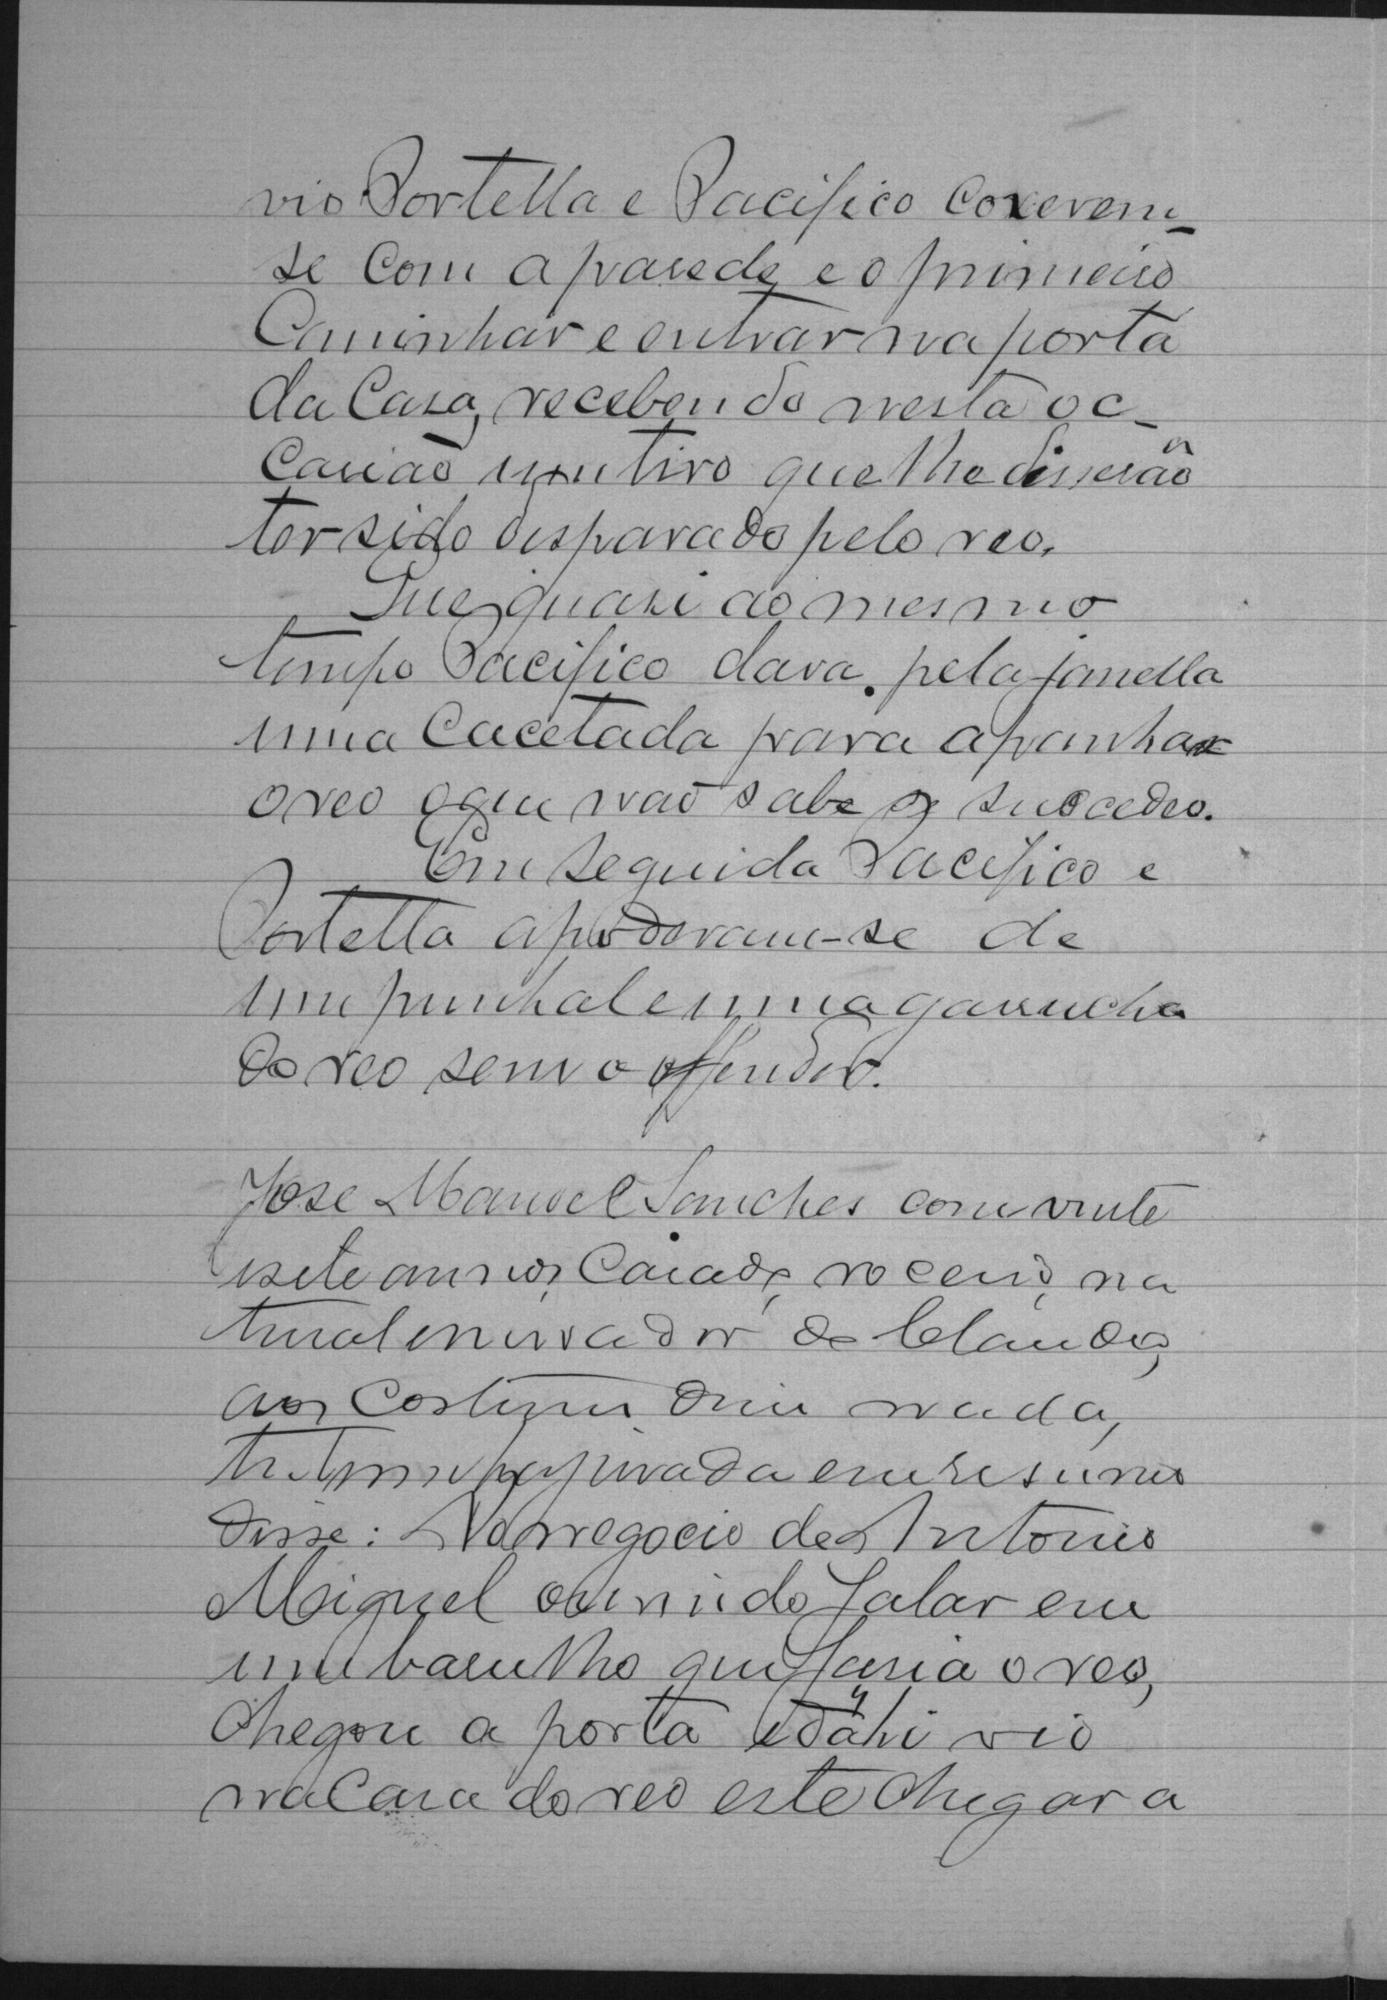 vio Portella e Pacifico coserem-
se com a parede e o primeiro
Caminhar e entrar na porta
da Casa, recebendo nesta oc-
casião um tiro que lhe disserão
ter sido disparado pelo reo.
Que quasi ao mesmo
tempo Pacifico dava pela janella
uma Cacetada para apanhar
o reo o que não sabe se succedeo.
Em seguida Pacifico e
Portella apoderam-se de
um punhal e uma garrucha
do reo sem o offender.
Jose Manoel Sanches com vinte
e sete annos, Casado, roceiro, na
tural e morador de
aos Costumes disse nada,
jurada e em resumo
disse: No negocio de Antonio
Miguel ouvindo falar em
um barulho que fasia o reo,
Chegou a porta e dahi vio
na Casa do reo este Chegar a